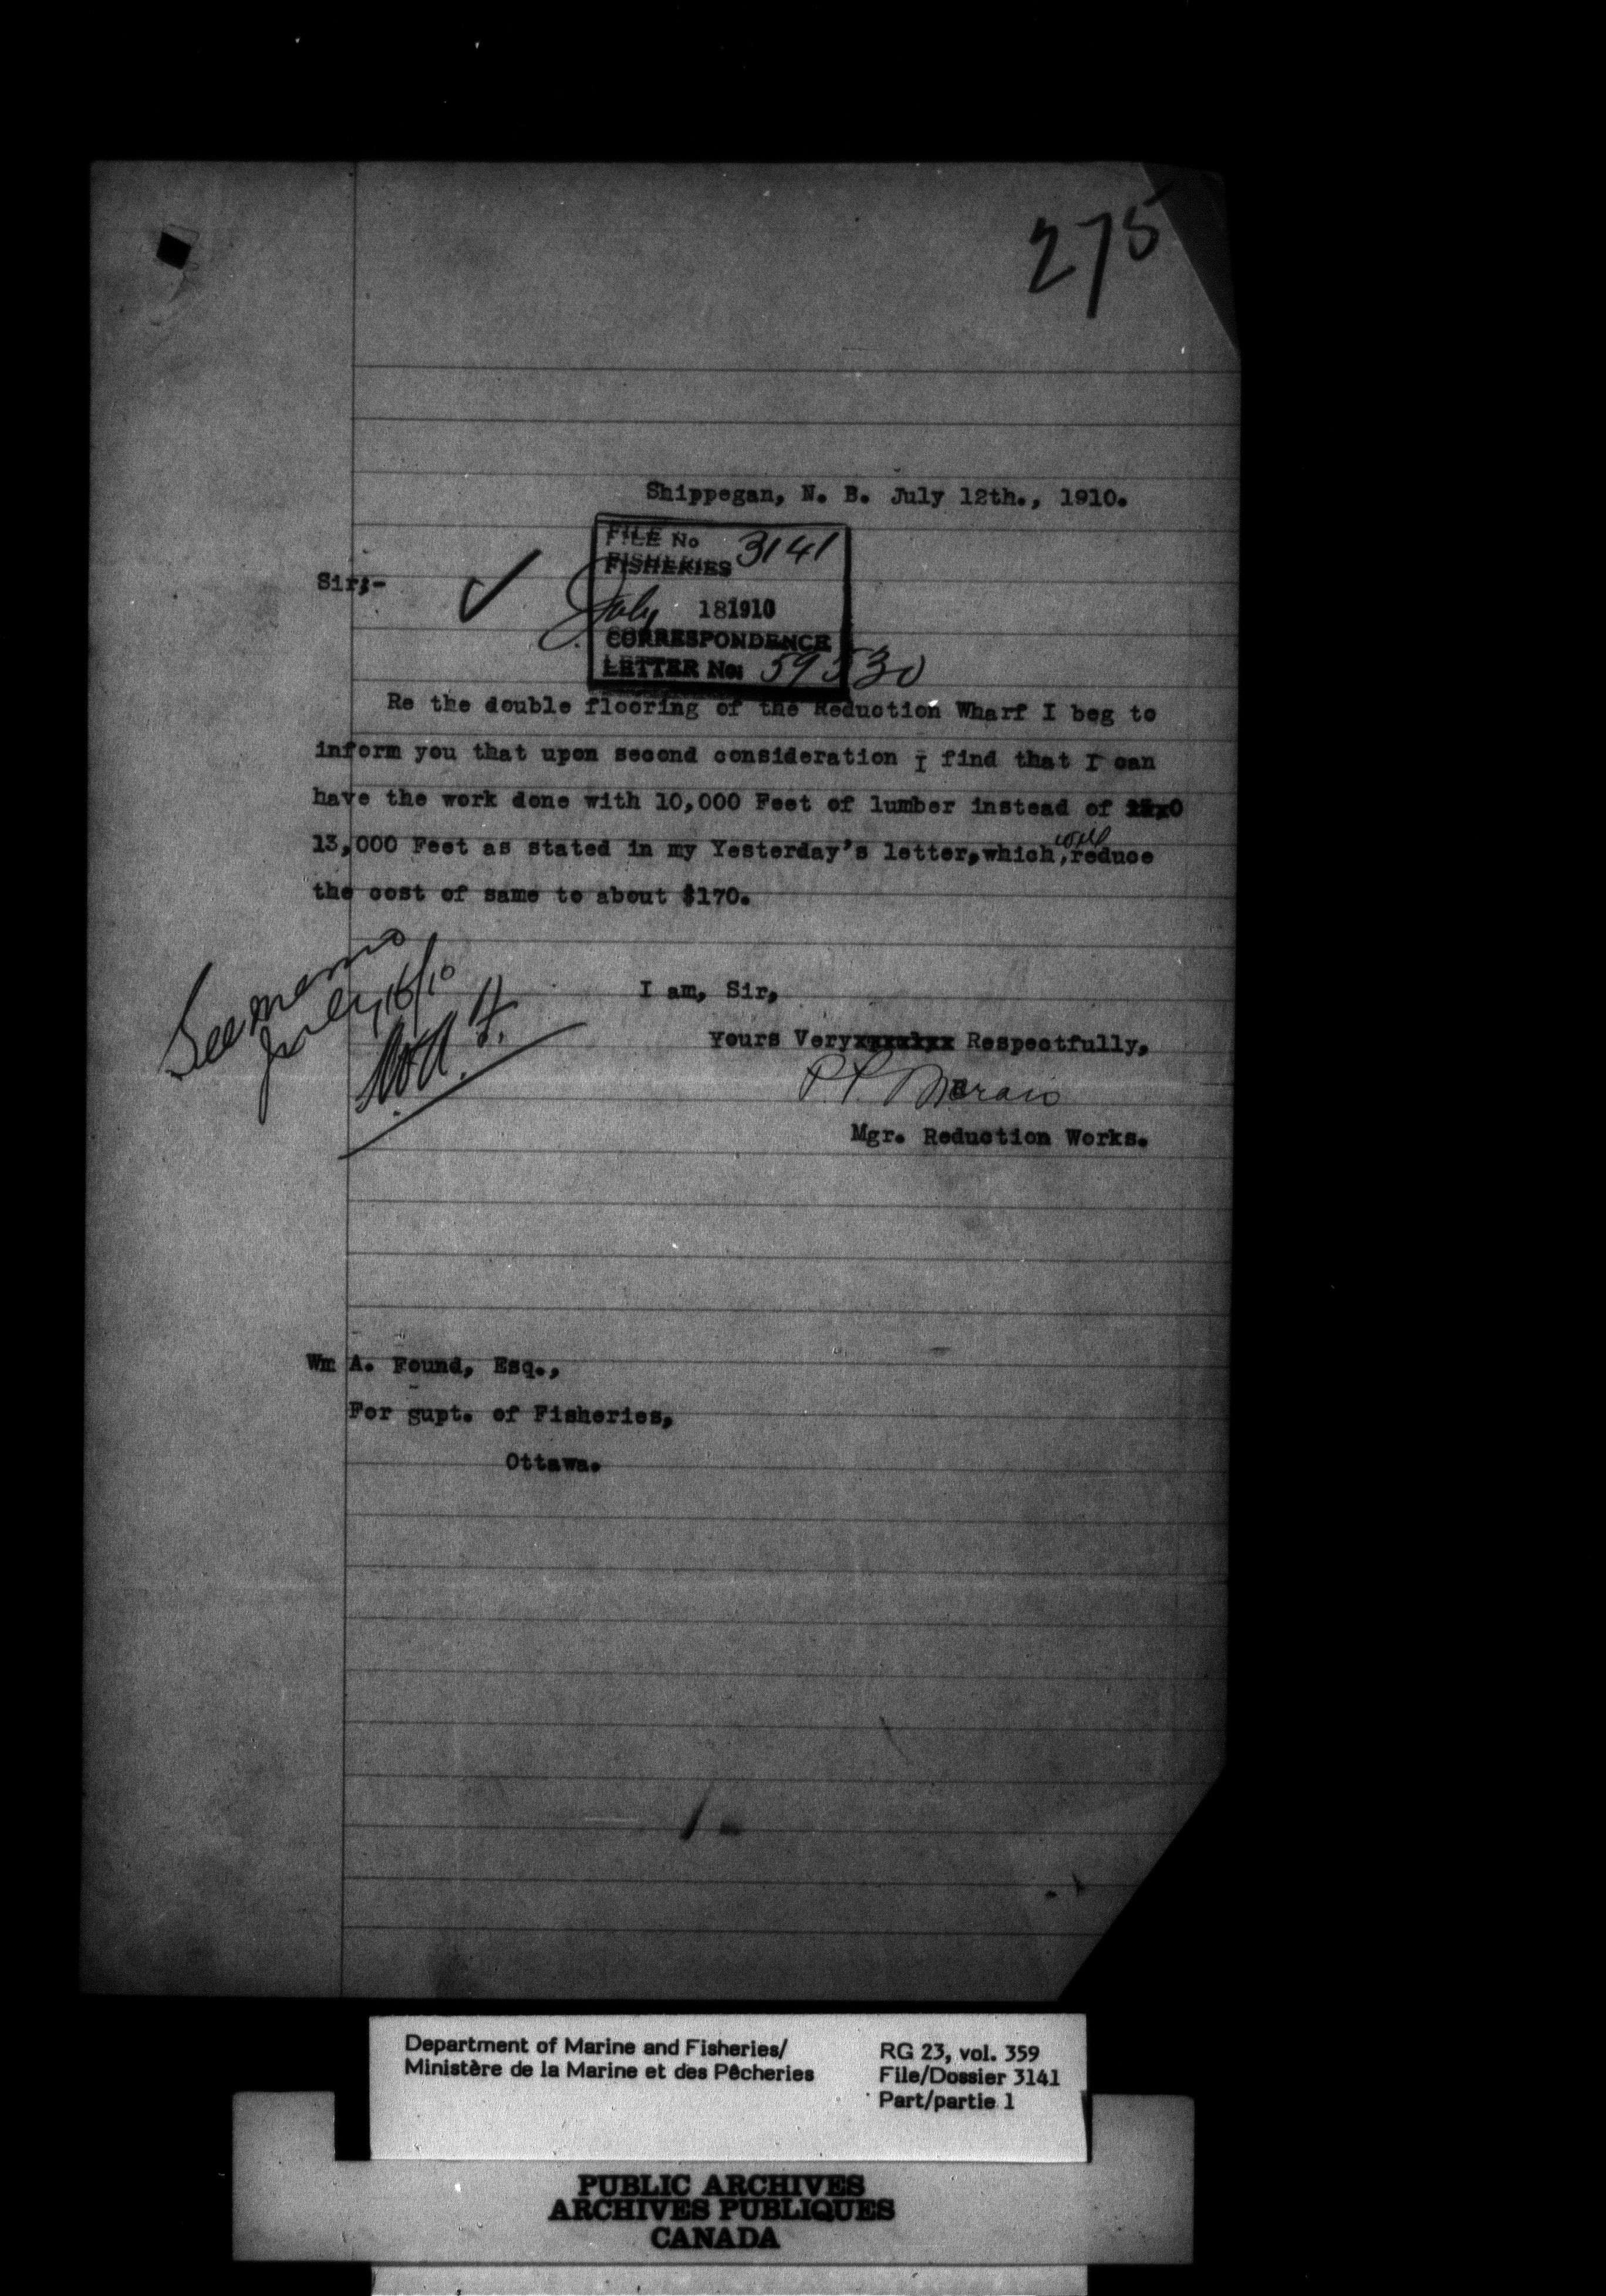 275
Shippegan, N. B. July 12th., 1910.
FILE No 3141
FISHERIES
Sir;-
July 18 1910
CORRESPONDENCE
LETTER No: 59530
Re the double flooring of the Reduction Wharf I beg to
inform you that upon second consideration I find that I can
have the work done with 10,000 Feet of lumber instead of
13,000 Feet as stated in my Yesterday's letter, which, will reduce
the cost of same to about $170.
See memo
July 16/10
I am, Sir,
Yours Very Respectfully,
P. P. Morais
Mgr. Reduction Works.
Wm A. Found, Esq.,
For gupt. of Fisheries,
Ottawa.
Department of Marine and Fisheries/
Ministère de la Marine et des Pêcheries
RG 23, vol. 359
File/Dossier 3141
Part/partie 1
PUBLIC ARCHIVES
ARCHIVES PUBLIQUES
CANADA